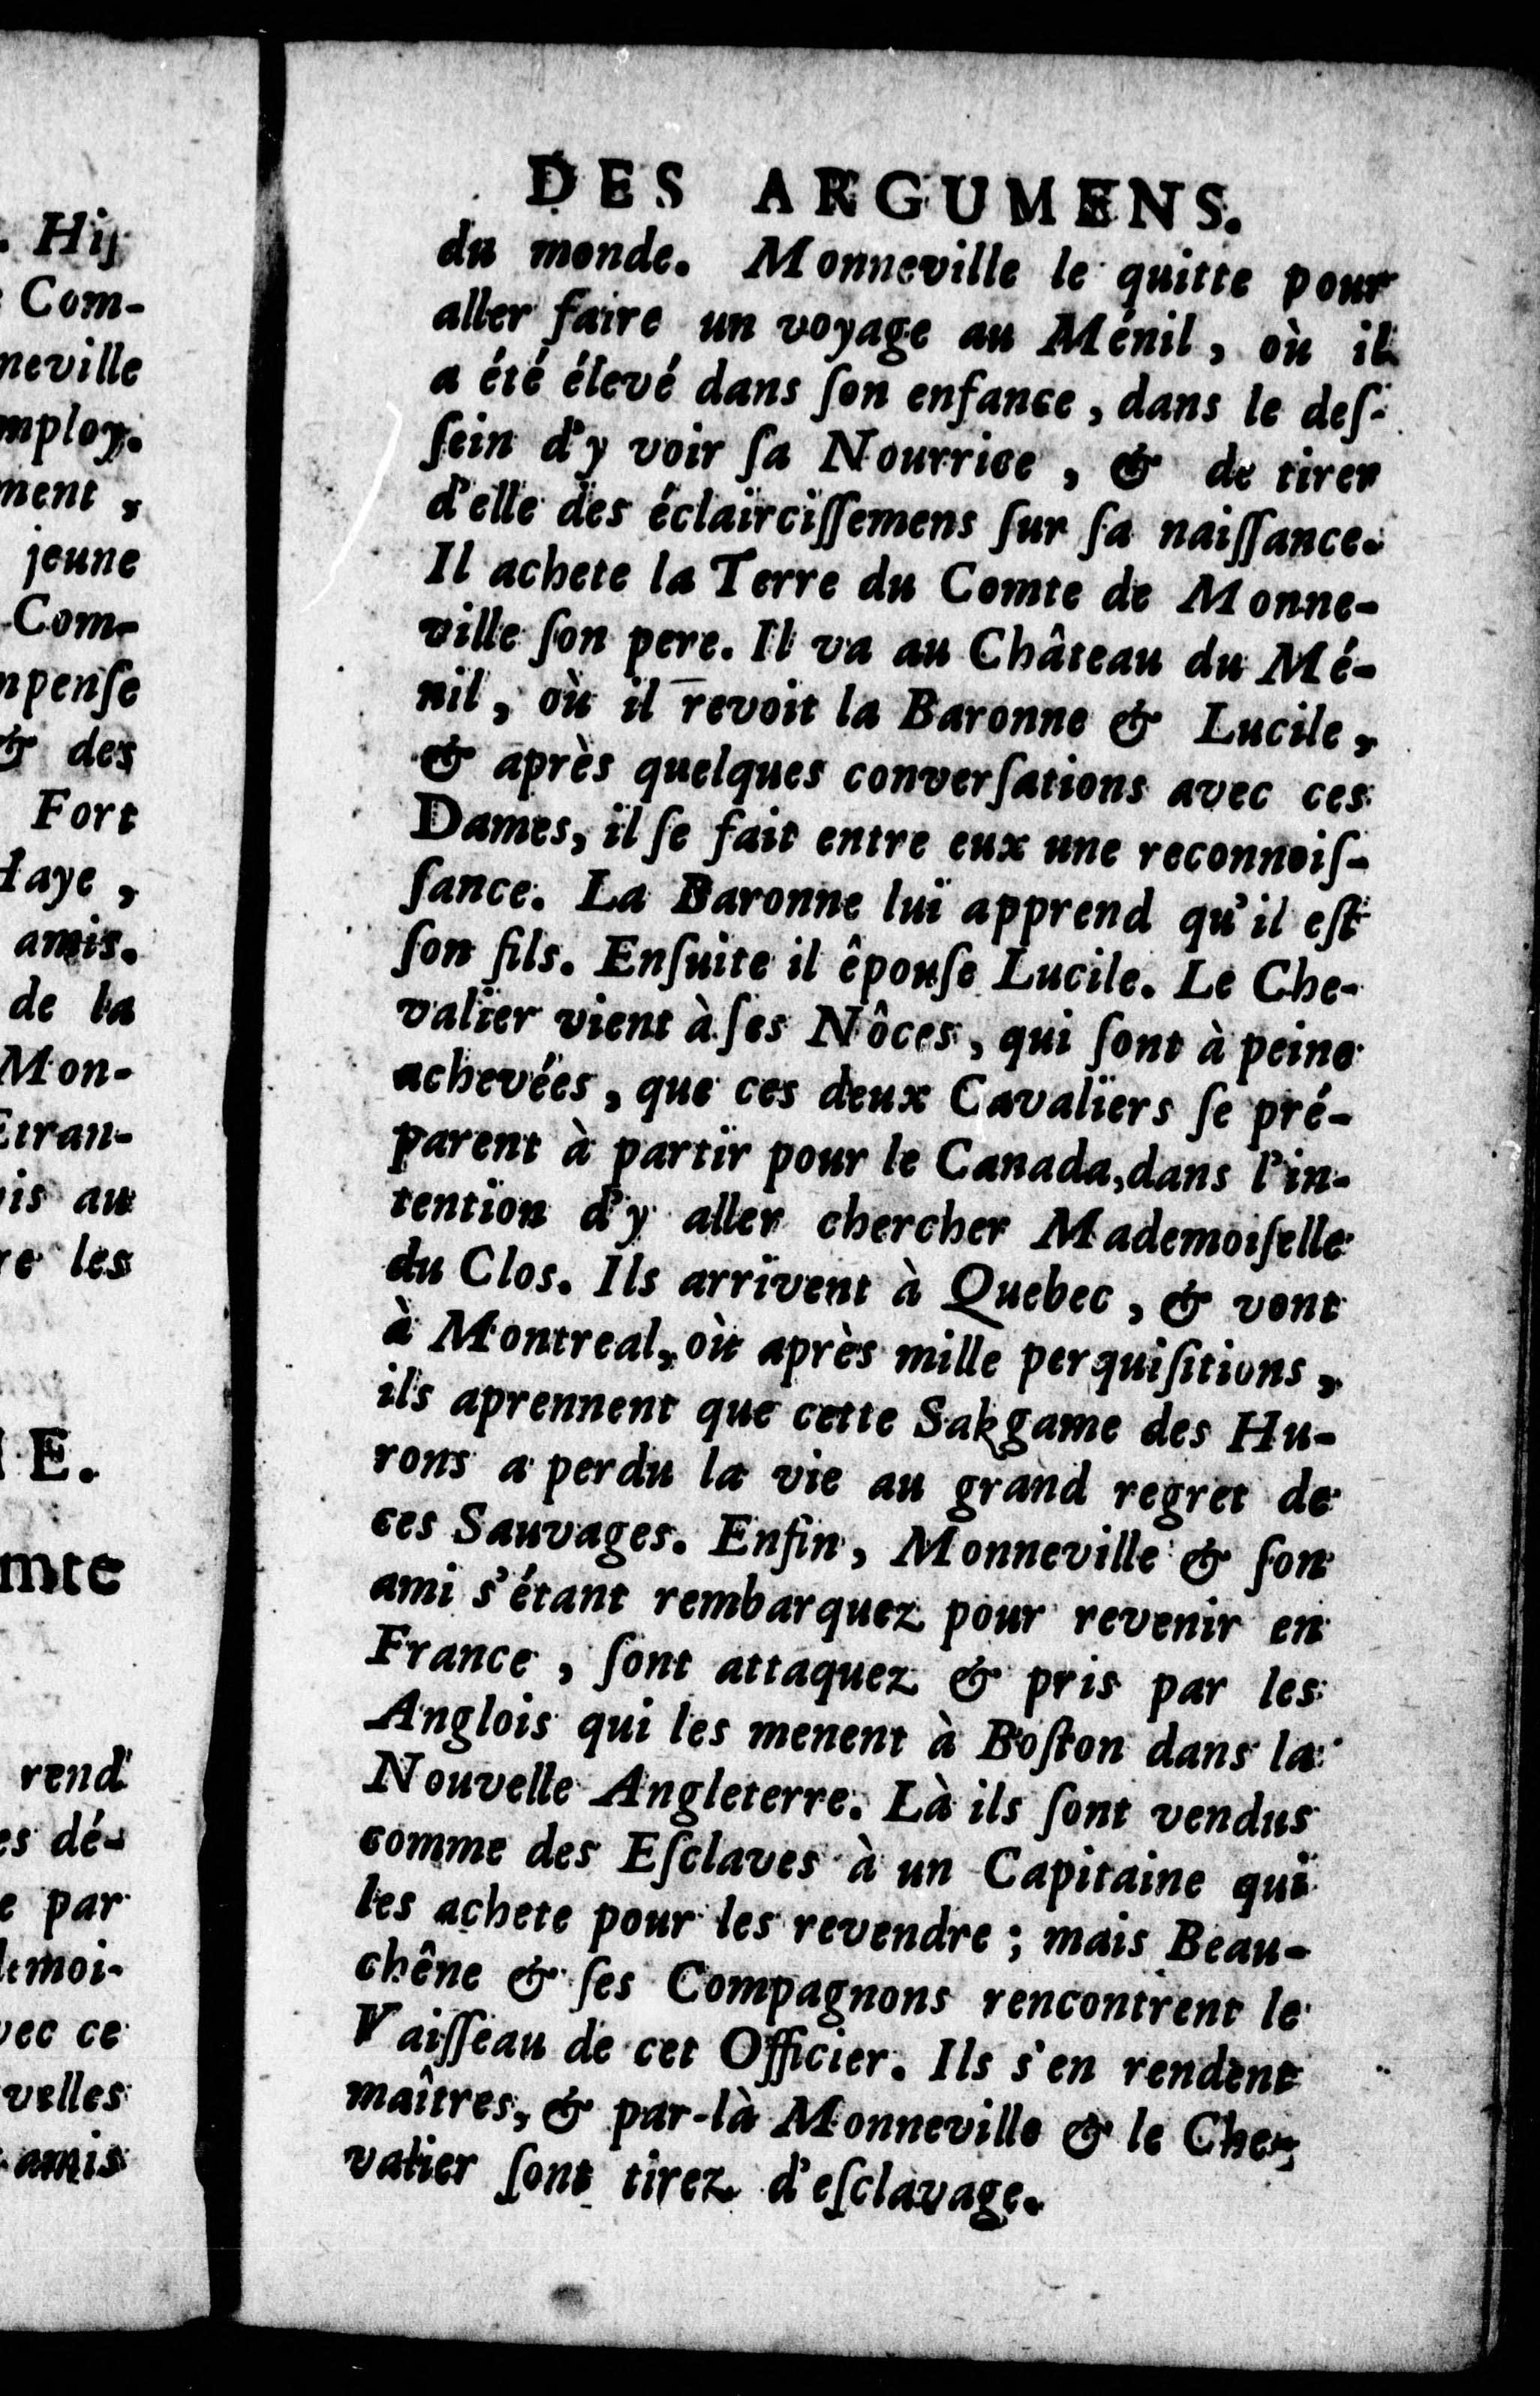 DES ARGUMENS.
du monde. Monneville le quitte pour
aller faire un voyage au Ménil, où il
a été élevé dans ſon enfance, dans le deſ-
ſein d'y voir ſa Nourrice, & de tirer
d'elle des éclairciſſemens ſur ſa naiſſance.
Il achete la Terre du Comte de Monne-
ville ſon pere. Il va au Château du Mé-
nil, où il revoit la Baronne & Lucile,
& après quelques converſations avec ces
Dames, il ſe fait entre eux une reconnoiſ-
ſance. La Baronne lui apprend qu'il eſt
ſon fils. Enſuite il êpouſe Lucile. Le Che-
valier vient à ſes Nôces, qui ſont à peine
achevées, que ces deux Cavaliers ſe pré-
parent à partir pour le Canada, dans l'in-
tention d'y aller chercher Mademoiſelle
du Clos. Ils arrivent à Quebec, & vont
à Montreal, où après mille perquiſitions,
ils aprennent que cette Sakgame des Hu-
rons a perdu la vie au grand regret de
ces Sauvages. Enfin, Monneville & ſon
ami s'étant rembarquez pour revenir en
France, ſont attaquez & pris par les
Anglois qui les menent à Boſton dans la
Nouvelle Angleterre. Là ils ſont vendus
comme des Eſclaves à un Capitaine qui
les achete pour les revendre; mais Beau-
chêne & ſes Compagnons rencontrent le
Vaiſſeau de cet Officier. Ils s'en rendent
maîtres, & par-là Monneville & le Che-
valier ſont tirez d'eſclavage.